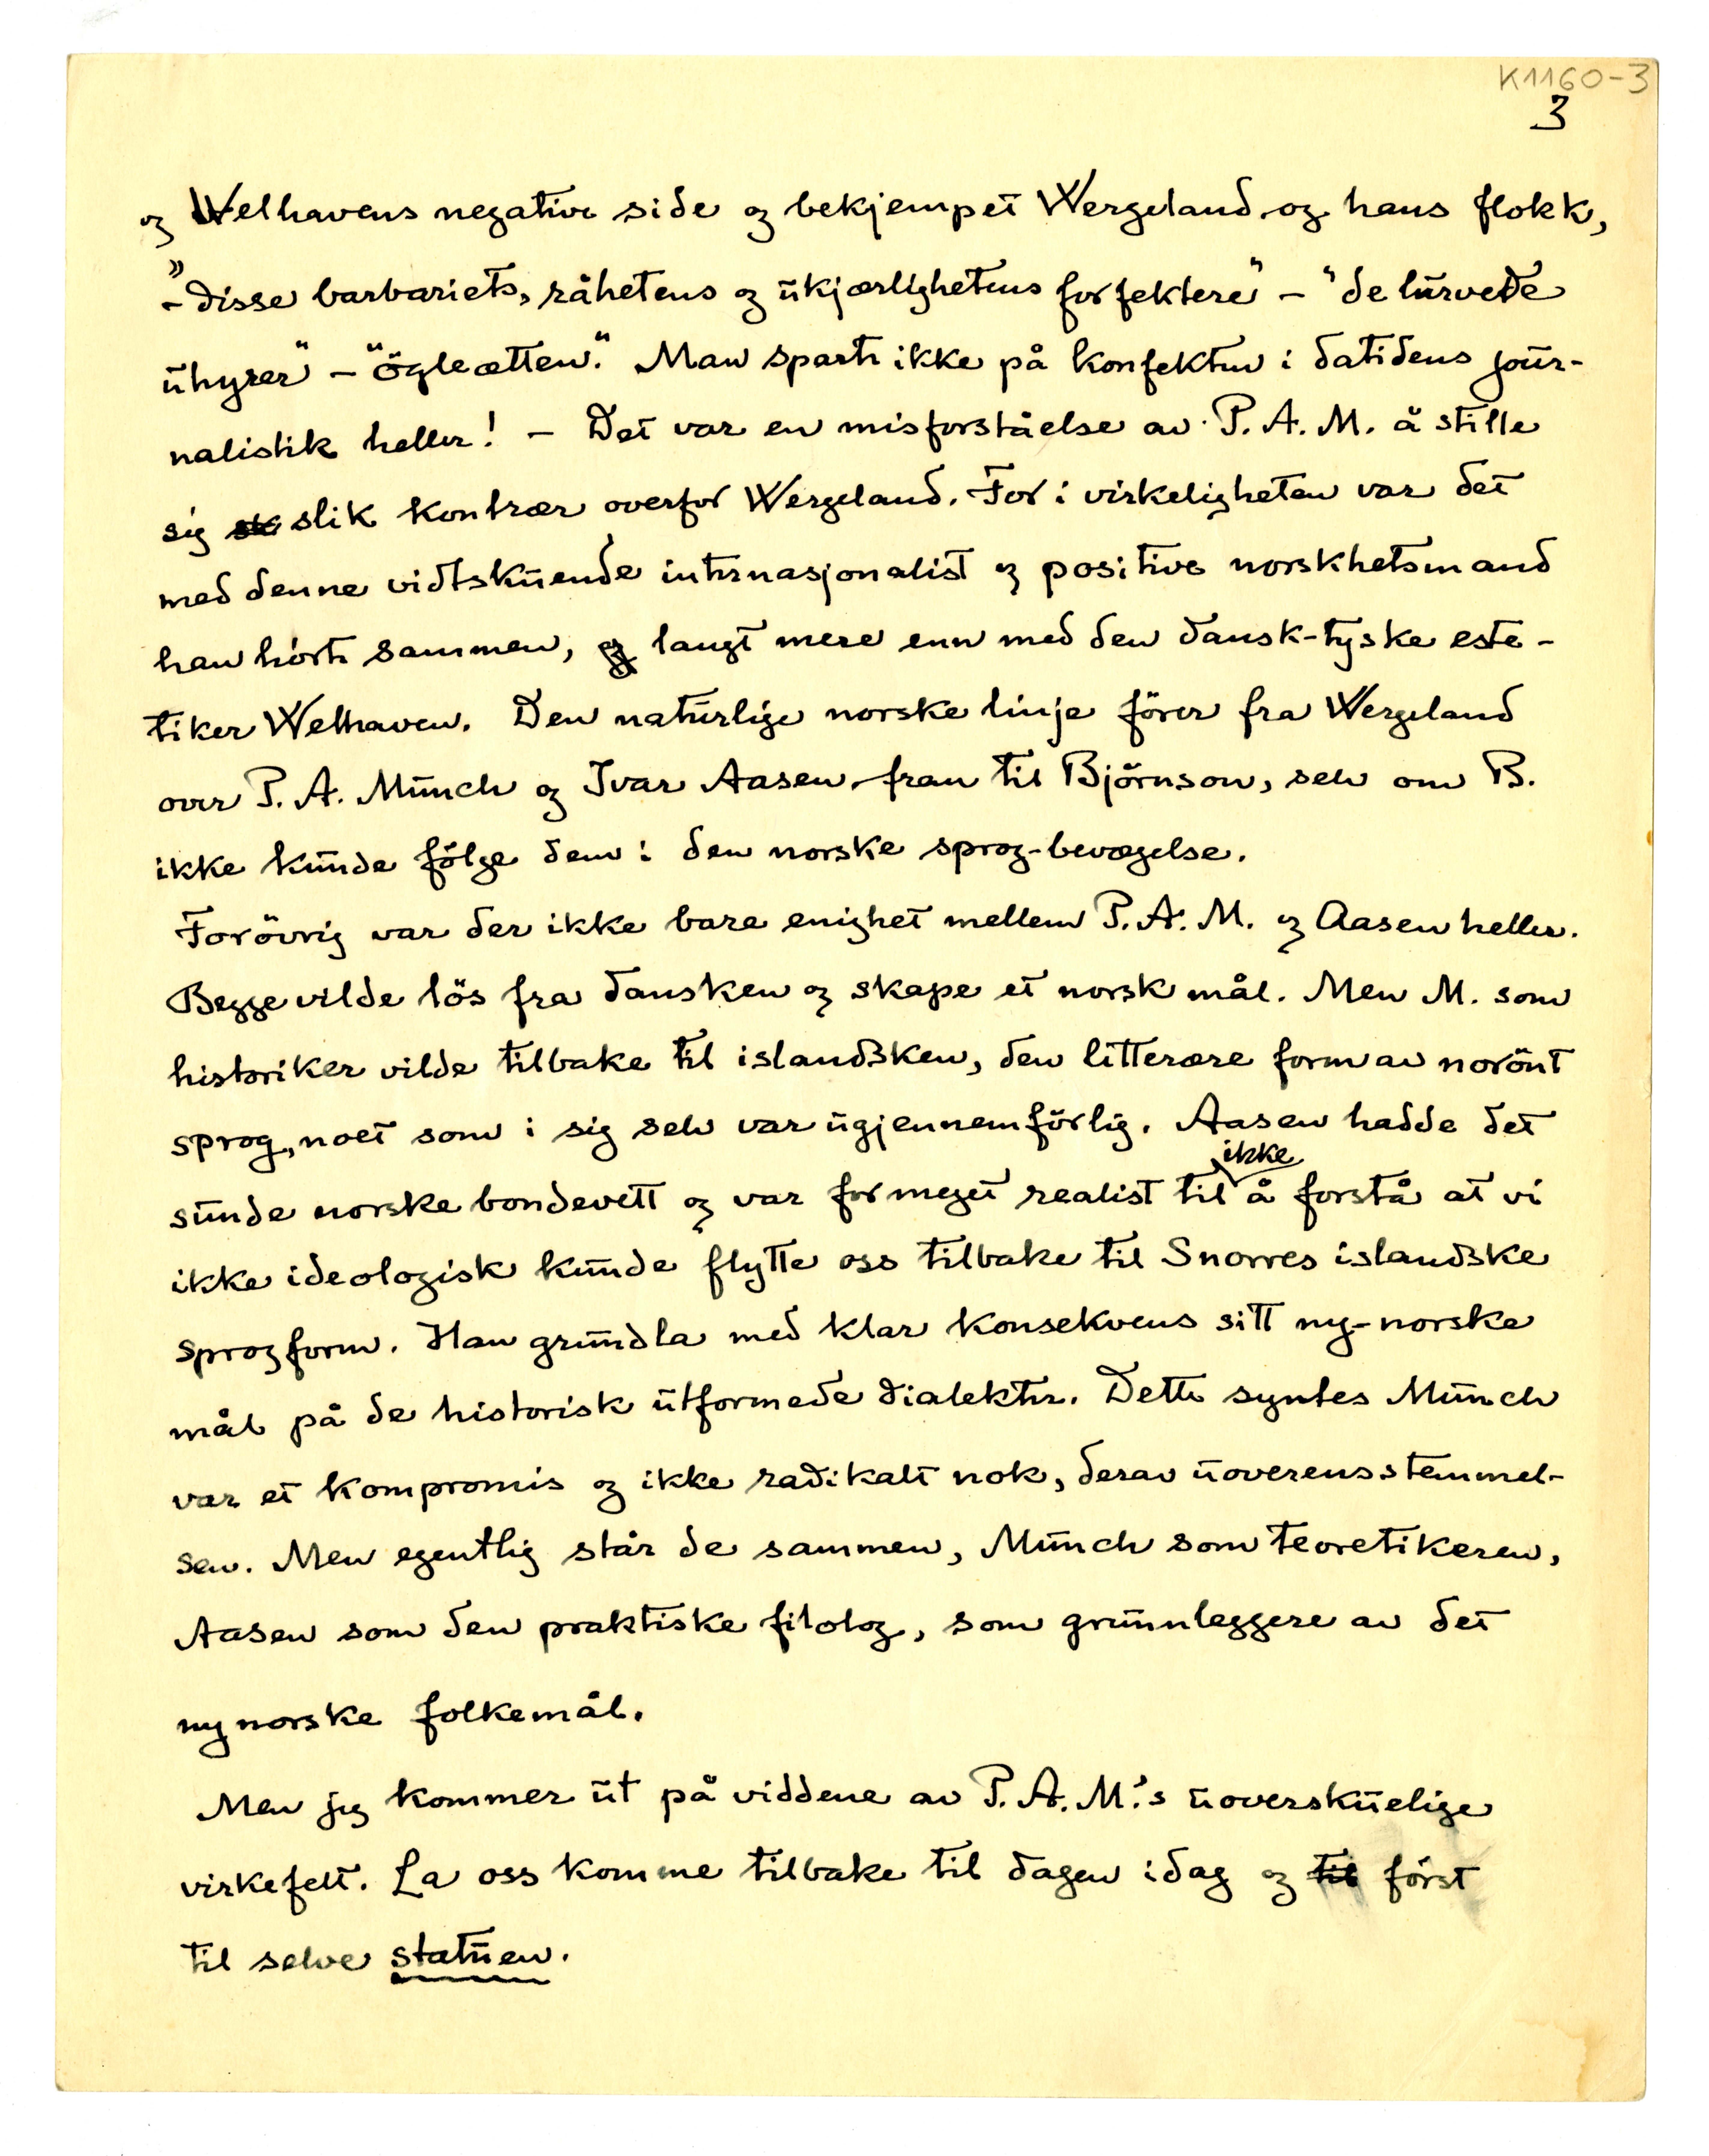 K1160-3
3
og Welhavens negative side og bekjempet Wergeland og hans flokk,
"- disse barbariets, råhetens og ukjærlighetens forfektere" - "de lurvede
uhyrer" - "ögleætten." Man sparte ikke på konfekten i datidens jour-
nalistik heller! - Det var en misforståelse av P. A. M. å stille
sig sk slik kontrær overfor Wergeland. For i virkeligheten var det
med denne vidtskuende internasjonalist og positive norskhetsmand
han hörte sammen, og langt mere enn med den dansk-tyske este-
tiker Welhaven. Den naturlige norske linje förer fra Wergeland
over P. A. Munch og Ivar Aasen fram til Björnson, selv om B.
ikke kunde fölge dem i den norske sprog-bevægelse.
Forövrig var der ikke bare enighet mellem P. A. M. og Aasen heller.
Begge vilde lös fra dansken og skape et norsk mål. Men M. som
historiker vilde tilbake til islandsken, den litterære form av norönt
sprog, noet som i sig selv var ugjennemförlig. Aasen hadde det
sunde norske bondevett og var for meget realist til ikke å forstå at vi
ikke ideologisk kunde flytte oss tilbake til Snorres islandske
sprogform. Han grundla med klar konsekvens sitt ny-norske
mål på de historisk utformede dialekter. Dette syntes Munch
var et kompromis og ikke radikalt nok, derav uoverensstemmel-
sen. Men egentlig står de sammen, Munch som teoretikeren,
Aasen som den praktiske filolog, som grunnleggere av det
nynorske folkemål.
Men jeg kommer ut på viddene av P. A. M.'s uoverskuelige
virkefelt. La oss komme tilbake til dagen idag og til först
til selve statuen.